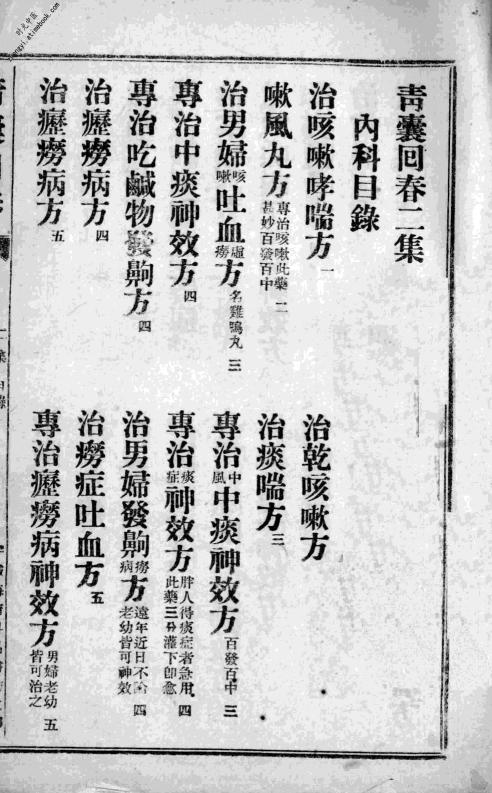 時光中医
yi.atimebook.com
青囊回春二集
內科目錄
治咳嗽哮喘方 一
治乾咳嗽方
嗽風丸方 專治咳嗽此藥甚妙百發百中 二
治痰喘方 三
治男婦咳嗽吐血虛癆方 名雞鴨丸 三
專治中風中痰神效方 百發百中 三
專治中痰神效方 四
專治痰症神效方 胖人得痰症者急用此藥三分灌下卽愈 四
專治吃鹹物發齁方 四
治男婦發齁癆病方 遠年近日不論老幼皆可神效 四
治癧癆病方 四
治癆症吐血方 五
治癧癆病方 五
專治癧癆病神效方 男婦老幼皆可治之 五